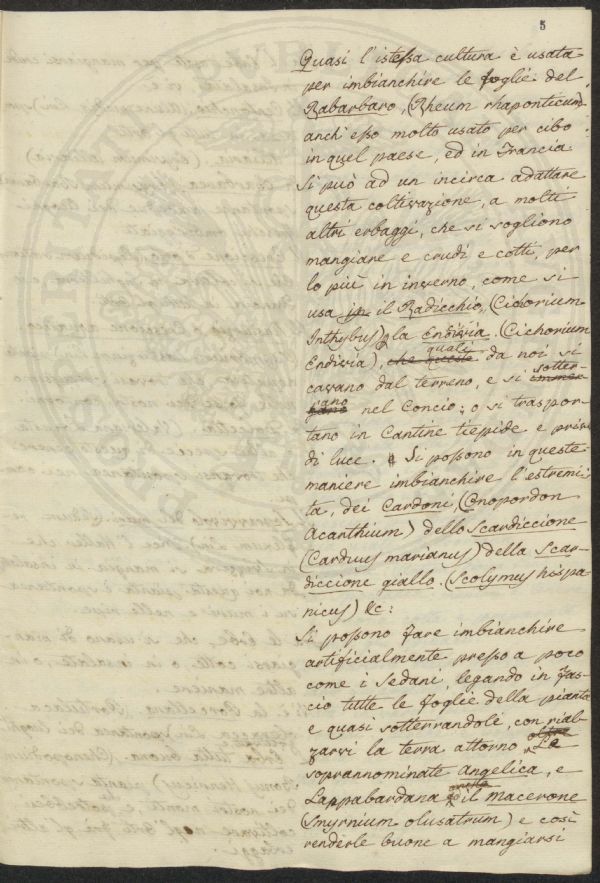 5
Quasi l'istessa cultura è usata
per imbianchire le foglie del
Rabarbaro, (Rheum rhaponticum)
anch'esso molto usato per cibo
in quel paese, ed in Francia.
Si può ad un incirca adattare
questa coltivazione, a molti
altri erbaggi, che si sogliono
mangiare e crudi e cotti, per
lo più in inverno, come si
usa in il Radicchio, (Cichorium
Inthybus) la Endivia, (Cichorium
Endivia), che queste quali da noi si
cavano dal terreno, e si sotter-
ano nel Concio; o si traspor-
tano in Cantine tiepide e prive
di luce. Si possono in queste
maniere imbianchire l'estremi-
tà, dei Cardoni, (Onopordon
Acanthium) dello Scardiccione
(Carduus marianus) della Scar-
diccione giallo. (Scolymus hispa-
nicus) &c:
Si possono fare imbianchire
artificialmente presso a poco
come i Sedani, legando in fas-
cio tutte le foglie della pianta
e quasi sotterrandole, con rial-
zarvi la terra attorno oltre Le
soprannominate Angelica, e
Lappabardana anche il Macerone
(Smyrnium olusatrum) e così
renderle buone a mangiarsi